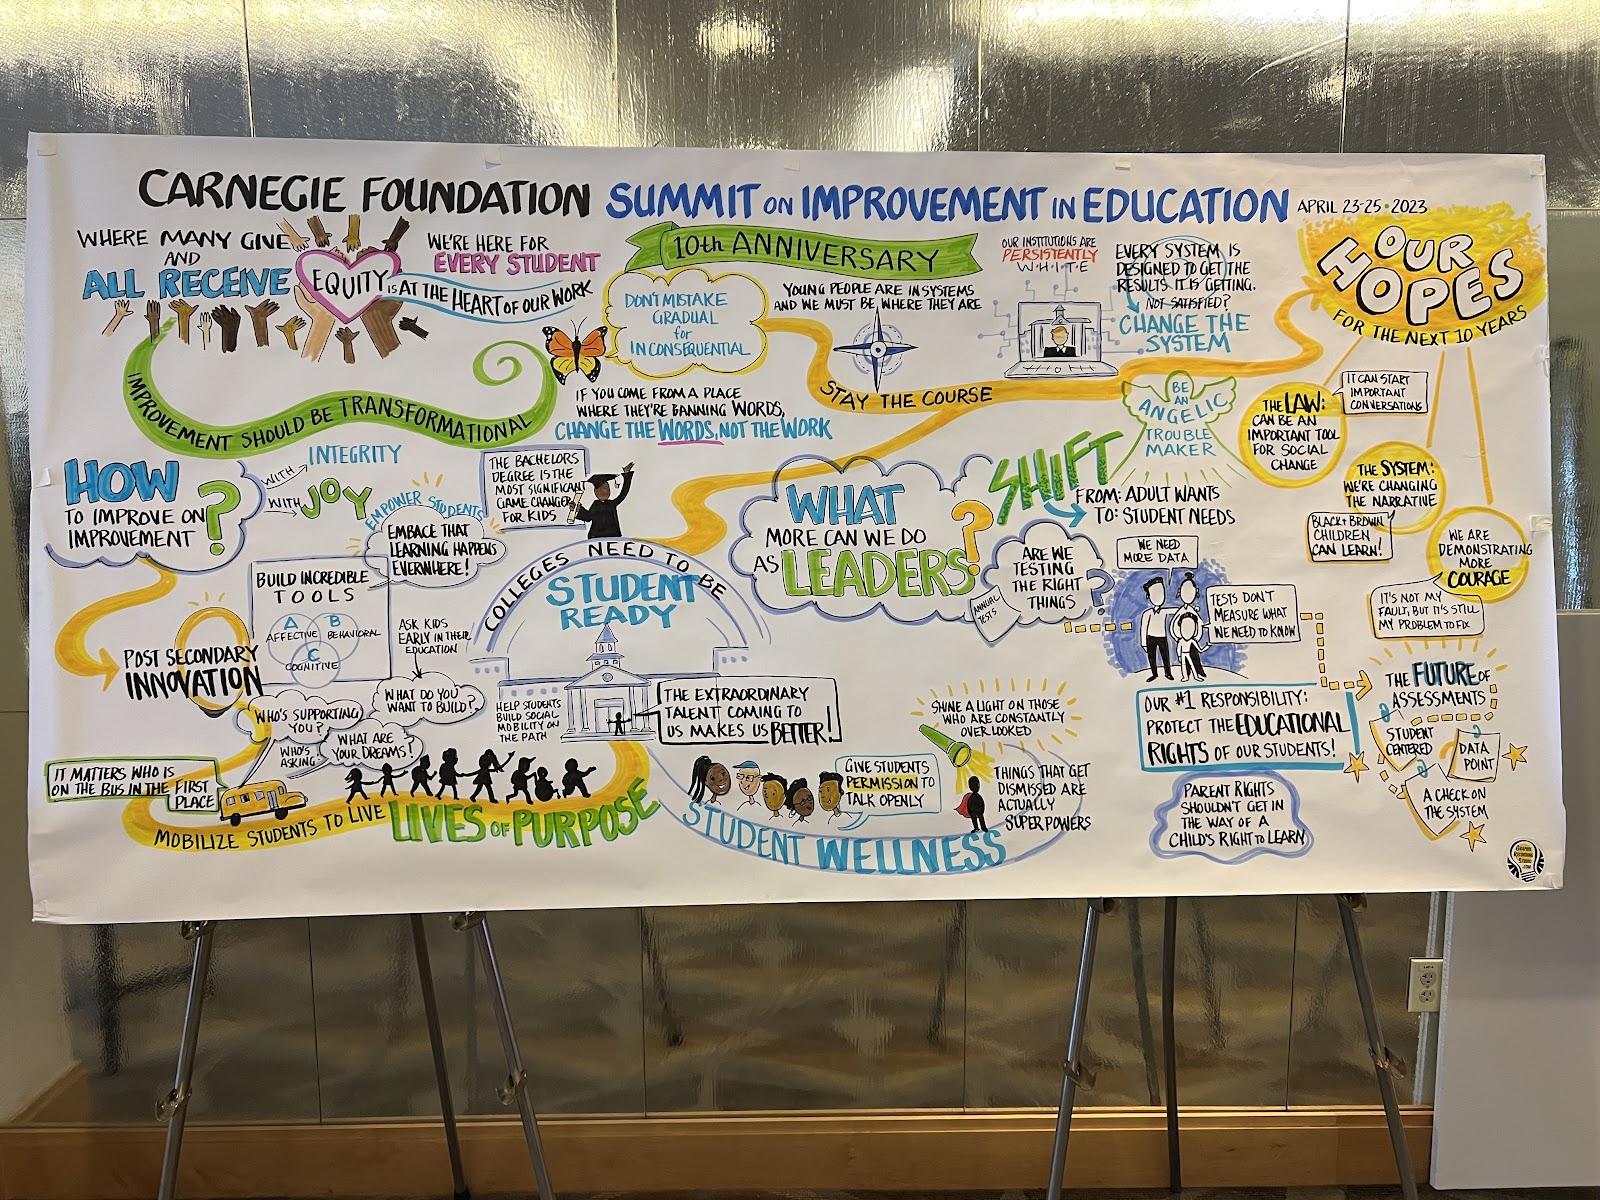 CARNEGIE FOUNDATION SUMMIT ON IMPROVEMENT IN EDUCATION APRIL 23-25 • 2023
WHERE MANY GIVE
AND
ALL RECEIVE
EQUITY IS AT THE HEART OF OUR WORK
WE'RE HERE FOR
EVERY STUDENT
10th ANNIVERSARY
DON'T MISTAKE
GRADUAL
for
INCONSEQUENTIAL
YOUNG PEOPLE ARE IN SYSTEMS
AND WE MUST BE WHERE THEY ARE
OUR INSTITUTIONS ARE
PERSISTENTLY
WHITE
EVERY SYSTEM IS
DESIGNED TO GET THE
RESULTS IT IS GETTING.
NOT SATISFIED?
CHANGE THE
SYSTEM
OUR
HOPES
FOR THE NEXT 10 YEARS
IMPROVEMENT SHOULD BE TRANSFORMATIONAL
IF YOU COME FROM A PLACE
WHERE THEY'RE BANNING WORDS,
CHANGE THE WORDS, NOT THE WORK
STAY THE COURSE
BE
AN
ANGELIC
TROUBLE
MAKER
THE LAW:
CAN BE AN
IMPORTANT TOOL
FOR SOCIAL
CHANGE
IT CAN START
IMPORTANT
CONVERSATIONS
THE SYSTEM:
WE'RE CHANGING
THE NARRATIVE
BLACK + BROWN
CHILDREN
CAN LEARN!
WE ARE
DEMONSTRATING
MORE
COURAGE
IT'S NOT MY
FAULT, BUT IT'S STILL
MY PROBLEM TO FIX
HOW
TO IMPROVE ON
IMPROVEMENT
?
WITH INTEGRITY
WITH JOY
EMPOWER STUDENTS
EMBACE THAT
LEARNING HAPPENS
EVERWHERE!
THE BACHELORS
DEGREE IS THE
MOST SIGNIFICANT
GAME CHANGER
FOR KIDS
BUILD INCREDIBLE
TOOLS
A
AFFECTIVE
B
BEHAVIORAL
C
COGNITIVE
ASK KIDS
EARLY IN THEIR
EDUCATION
WHAT DO YOU
WANT TO BUILD?
POST SECONDARY
INNOVATION
WHO'S SUPPORTING
YOU?
WHO'S
ASKING
WHAT ARE
YOUR DREAMS?
IT MATTERS WHO IS
ON THE BUS IN THE FIRST
PLACE
MOBILIZE STUDENTS TO LIVE
LIVES OF PURPOSE
COLLEGES NEED TO BE
STUDENT
READY
HELP STUDENTS
BUILD SOCIAL
MOBILITY ON
THE PATH
THE EXTRAORDINARY
TALENT COMING TO
US MAKES US BETTER!
WHAT
MORE CAN WE DO
AS LEADERS
?
SHIFT
FROM: ADULT WANTS
TO: STUDENT NEEDS
ARE WE
TESTING
THE RIGHT
THINGS
?
ANNUAL
TESTS
WE NEED
MORE DATA
TESTS DON'T
MEASURE WHAT
WE NEED TO KNOW
GIVE STUDENTS
PERMISSION TO
TALK OPENLY
STUDENT WELLNESS
SHINE A LIGHT ON THOSE
WHO ARE CONSTANTLY
OVER LOOKED
THINGS THAT GET
DISMISSED ARE
ACTUALLY
SUPER POWERS
OUR #1 RESPONSIBILITY:
PROTECT THE EDUCATIONAL
RIGHTS OF OUR STUDENTS!
PARENT RIGHTS
SHOULDN'T GET IN
THE WAY OF A
CHILD'S RIGHT TO LEARN
THE FUTURE OF
ASSESSMENTS
STUDENT
CENTERED
DATA
POINT
A CHECK ON
THE SYSTEM
GRAPHIC
RECORDING
STUDIO
.COM